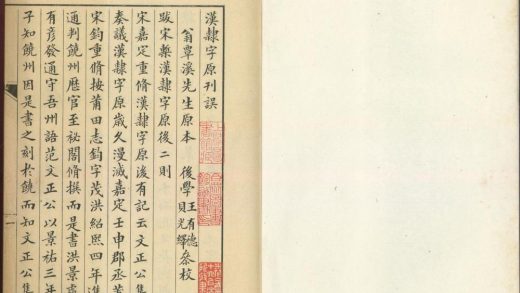 漢隸字原刊誤
翁覃溪先生原本　後學王有德
貝光繹叅校
跋宋槧漢隸字原後二則
宋嘉定重脩漢隸字原後有記云文正公
奏議漢隸字原歲久漫滅嘉定壬申郡丞
宋鈞重脩按莆田志鈞字茂洪紹熙四年進
通判饒州歷官至祕閣脩撰而是書洪景
有彥發通守吾州語范文正公以景祐三年
子知饒州因是書之刻於饒而知文正公集